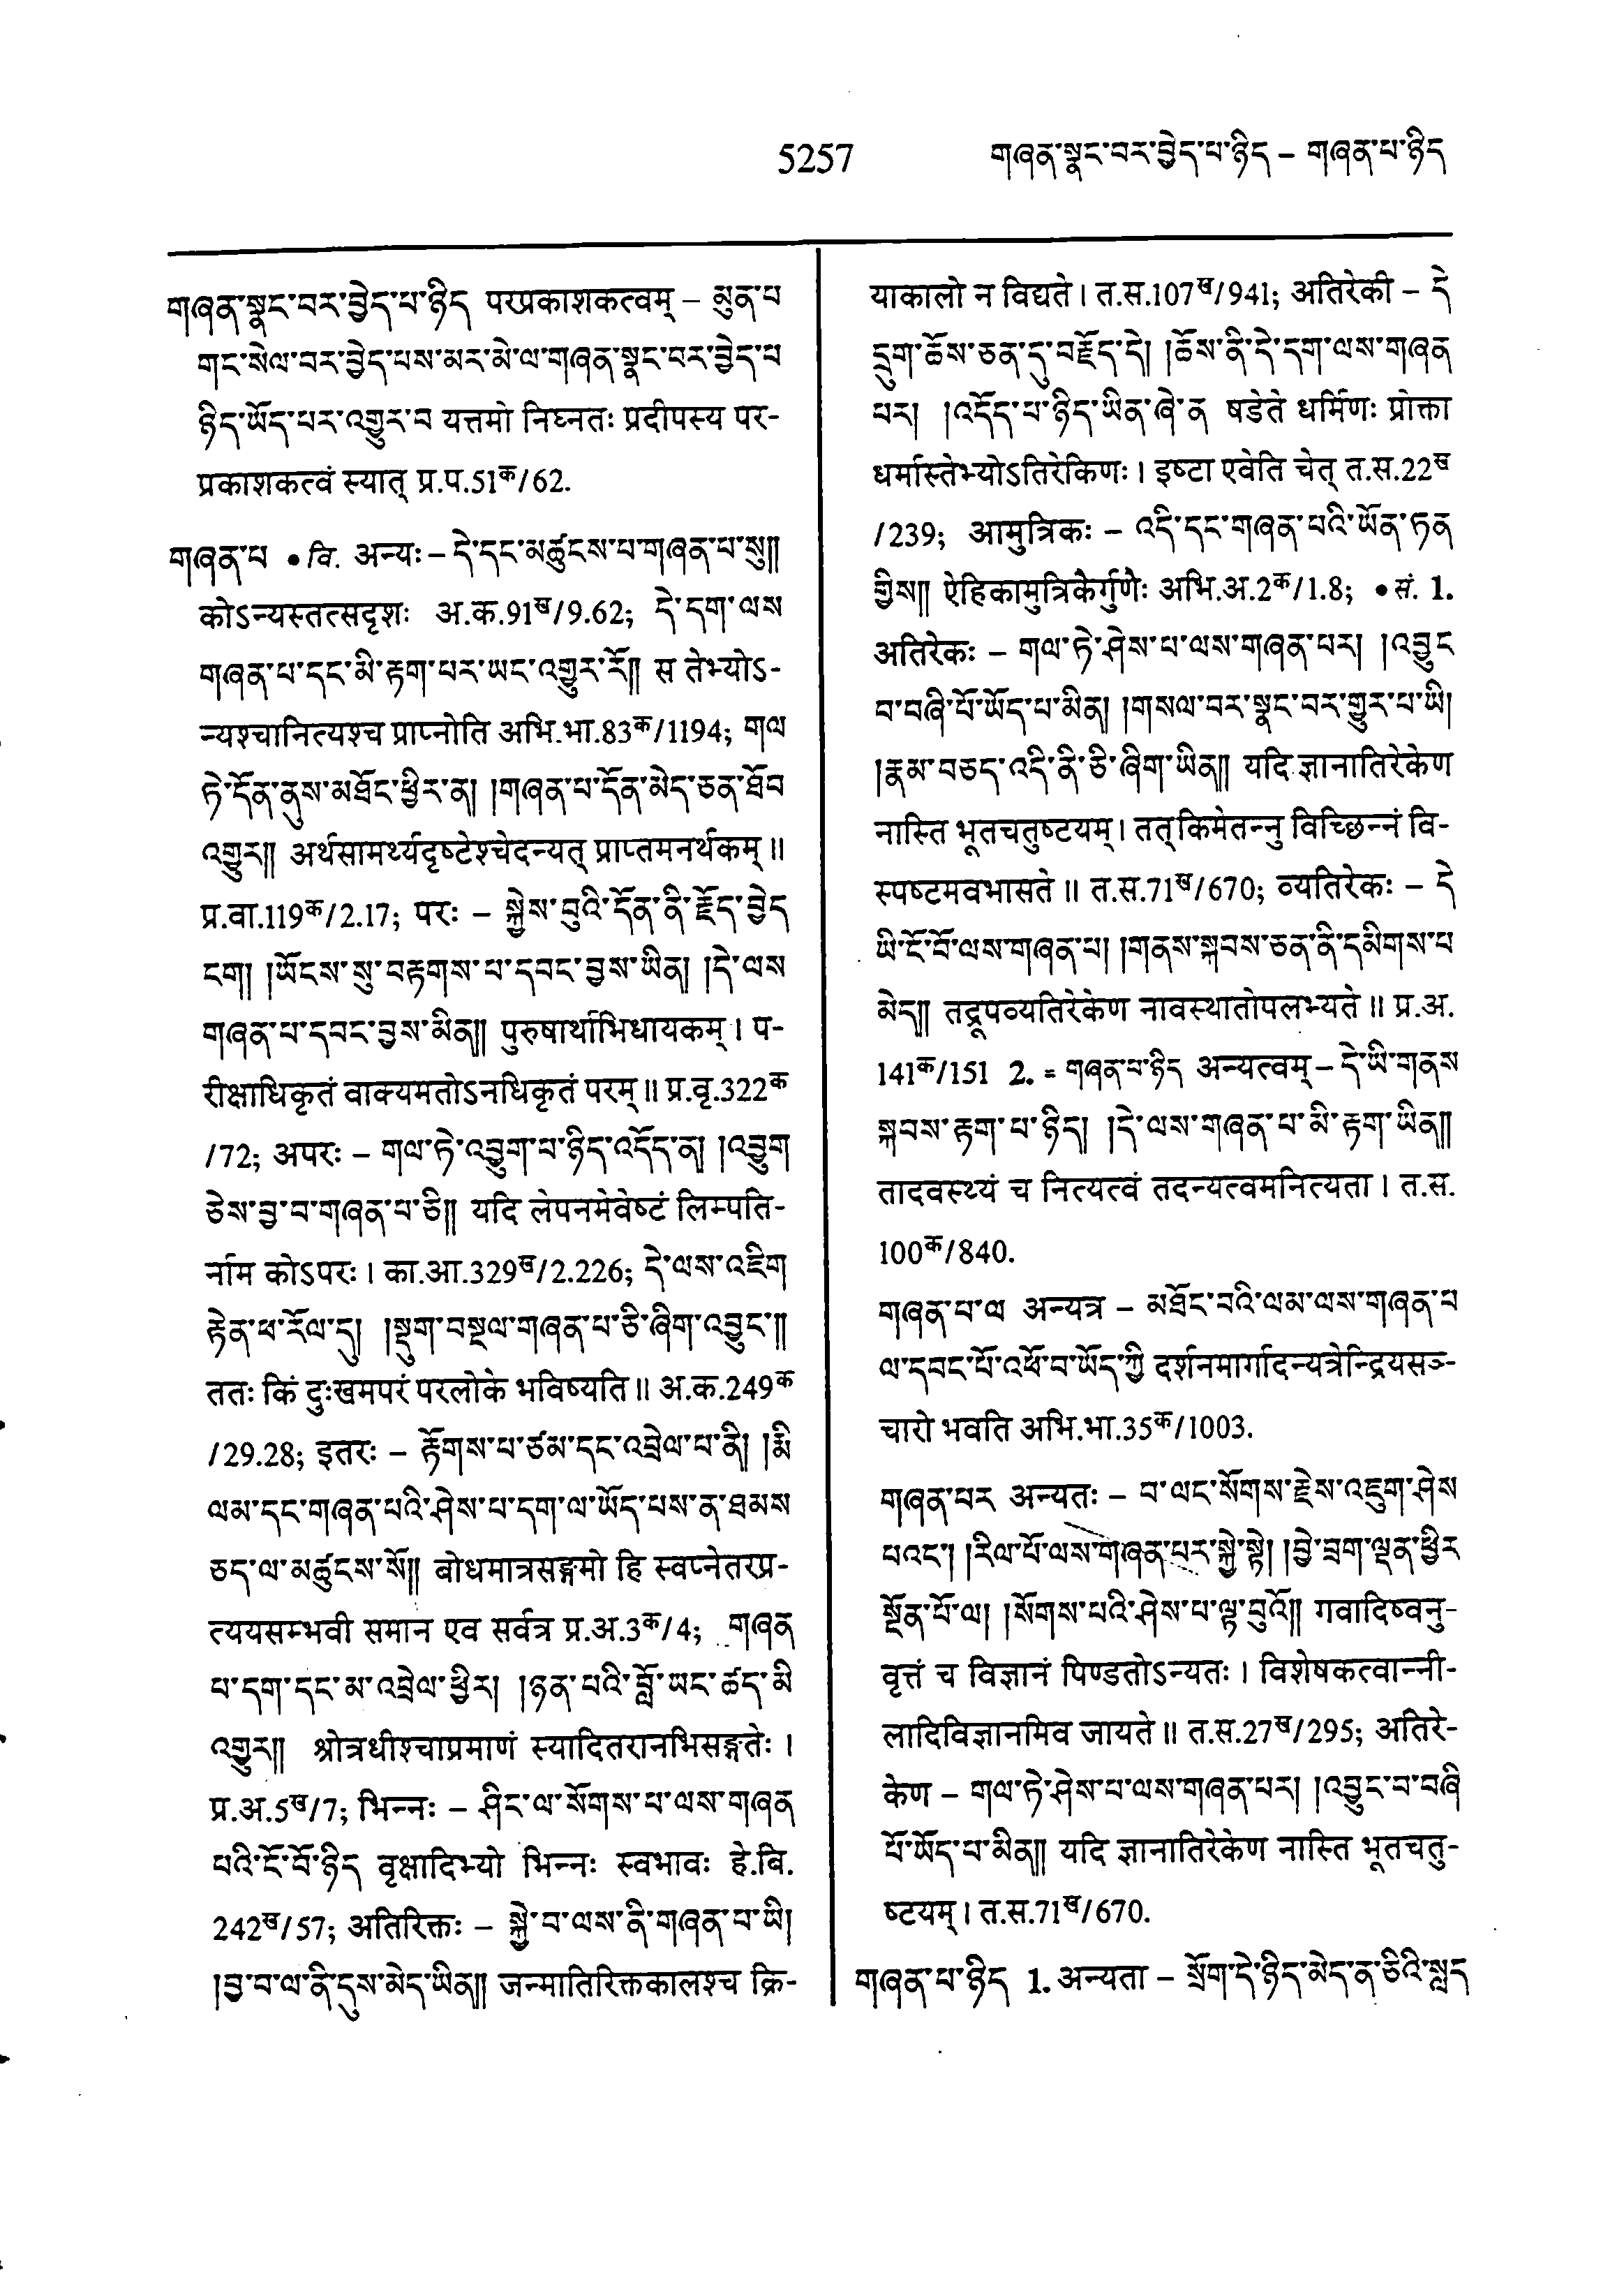 5257 གཞན་སྣང་བར་བྱེད་པ་ཉིད – གཞན་པ་ཉིད
གཞན་སྣང་བར་བྱེད་པ་ཉིད परप्रकाशकत्वम् – མུན་པ
གང་སེལ་བར་བྱེད་པས་མར་མེ་ལ་གཞན་སྣང་བར་བྱེད་པ
ཉིད་ཡོད་པར་འགྱུར་བ यत्तमो निघ्नतः प्रदीपस्य पर-
प्रकाशकत्वं स्यात् प्र.प.51क/62.
གཞན་པ • वि. अन्यः – དེ་དང་མཚུངས་པ་གཞན་པ་སུ།།
कोऽन्यस्तत्सदृशः अ.क.91ख/9.62; དེ་དག་ལས
གཞན་པ་དང་མི་རྟག་པར་ཡང་འགྱུར་རོ།། स तेभ्योऽ-
न्यश्चानित्यश्च प्राप्नोति अभि.भा.83क/1194; གལ
ཏེ་དོན་ནུས་མཐོང་ཕྱིར་ན། །གཞན་པ་དོན་མེད་ཅན་ཐོབ
འགྱུར།། अर्थसामर्थ्यदृष्टेश्चेदन्यत् प्राप्तमनर्थकम् ॥
प्र.वा.119क/2.17; परः – སྐྱེས་བུའི་དོན་ནི་རྗོད་བྱེད
ངག། །ཡོངས་སུ་བརྟགས་པ་དབང་བྱས་ཡིན། །དེ་ལས
གཞན་པ་དབང་བྱས་མིན།། पुरुषार्थाभिधायकम् । प-
रीक्षाधिकृतं वाक्यमतोऽनधिकृतं परम् ॥ प्र.वृ.322क
/72; अपरः – གལ་ཏེ་འབྱུག་པ་ཉིད་འདོད་ན། །འབྱུག
ཅེས་བྱ་བ་གཞན་པ་ཅི།། यदि लेपनमेवेष्टं लिम्पति-
र्नाम कोऽपरः । का.आ.329ख/2.226; དེ་ལས་འཇིག
རྟེན་ཕ་རོལ་དུ། །སྡུག་བསྔལ་གཞན་པ་ཅི་ཞིག་འབྱུང་།།
ततः किं दुःखमपरं परलोके भविष्यति ॥ अ.क.249क
/29.28; इतरः – རྟོགས་པ་ཙམ་དང་འབྲེལ་པ་ནི། །རྨི
ལམ་དང་གཞན་པའི་ཤེས་པ་དག་ལ་ཡོད་པས་ན་ཐམས
ཅད་ལ་མཚུངས་སོ།། बोधमात्रसङ्गमो हि स्वप्नेतरप्र-
त्ययसम्भवी समान एव सर्वत्र प्र.अ.3क/4; གཞན
པ་དག་དང་མ་འབྲེལ་ཕྱིར། །ཉན་པའི་བློ་ཡང་ཚད་མི
འགྱུར།། श्रोत्रधीश्चाप्रमाणं स्यादितरानभिसङ्गतेः ।
प्र.अ.5ख/7; भिन्नः – ཤིང་ལ་སོགས་པ་ལས་གཞན
པའི་ངོ་བོ་ཉིད वृक्षादिभ्यो भिन्नः स्वभावः हे.बि.
242ख/57; अतिरिक्तः – སྐྱེ་བ་ལས་ནི་གཞན་པ་ཡི།
།བྱ་བ་ལ་ནི་དུས་མེད་ཡིན།། जन्मातिरिक्तकालश्च क्रि-
याकालो न विद्यते । त.स.107ख/941; अतिरेकी – དེ
དྲུག་ཆོས་ཅན་དུ་བརྗོད་དེ། །ཆོས་ནི་དེ་དག་ལས་གཞན
པར། །འདོད་པ་ཉིད་ཡིན་ཞེ་ན षडेते धर्मिणः प्रोक्ता
धर्मास्तेभ्योऽतिरेकिणः । इष्टा एवेति चेत् त.स.22ख
/239; आमुत्रिकः – འདི་དང་གཞན་པའི་ཡོན་ཏན
གྱིས།། ऐहिकामुत्रिकैर्गुणैः अभि.अ.2क/1.8; • सं. 1.
अतिरेकः – གལ་ཏེ་ཤེས་པ་ལས་གཞན་པར། །འབྱུང
བ་བཞི་པོ་ཡོད་པ་མིན། །གསལ་བར་སྣང་བར་གྱུར་པ་ཡི།
།རྣམ་བཅད་འདི་ནི་ཅི་ཞིག་ཡིན།། यदि ज्ञानातिरेकेण
नास्ति भूतचतुष्टयम् । तत् किमेतन्नु विच्छिन्नं वि-
स्पष्टमवभासते ॥ त.स.71ख/670; व्यतिरेकः – དེ
ཡི་ངོ་བོ་ལས་གཞན་པ། །གནས་སྐབས་ཅན་ནི་དམིགས་པ
མེད།། तद्रूपव्यतिरेकेण नावस्थातोपलभ्यते ॥ प्र.अ.
141क/151 2. = གཞན་པ་ཉིད अन्यत्वम् – དེ་ཡི་གནས
སྐབས་རྟག་པ་ཉིད། །དེ་ལས་གཞན་པ་མི་རྟག་ཡིན།།
तादवस्थ्यं च नित्यत्वं तदन्यत्वमनित्यता । त.स.
100क/840.
གཞན་པ་ལ अन्यत्र – མཐོང་བའི་ལམ་ལས་གཞན་པ
ལ་དབང་པོ་འཕོ་བ་ཡོད་ཀྱི दर्शनमार्गादन्यत्रेन्द्रियसञ्-
चारो भवति अभि.भा.35क/1003.
གཞན་པར अन्यतः – བ་ལང་སོགས་རྗེས་འཇུག་ཤེས
པའང་། །རིལ་པོ་ལས་གཞན་པར་སྐྱེ་སྟེ། །བྱེ་བྲག་ལྡན་ཕྱིར
སྔོན་པོ་ལ། །སོགས་པའི་ཤེས་པ་ལྟ་བུའོ།། गवादिष्वनु-
वृत्तं च विज्ञानं पिण्डतोऽन्यतः । विशेषकत्वान्नी-
लादिविज्ञानमिव जायते ॥ त.स.27ख/295; अतिरे-
केण – གལ་ཏེ་ཤེས་པ་ལས་གཞན་པར། །འབྱུང་བ་བཞི
པོ་ཡོད་པ་མིན།། यदि ज्ञानातिरेकेण नास्ति भूतचतु-
ष्टयम् । त.स.71ख/670.
གཞན་པ་ཉིད 1. अन्यता – སྲོག་དེ་ཉིད་མེད་ན་ཅིའི་སླད